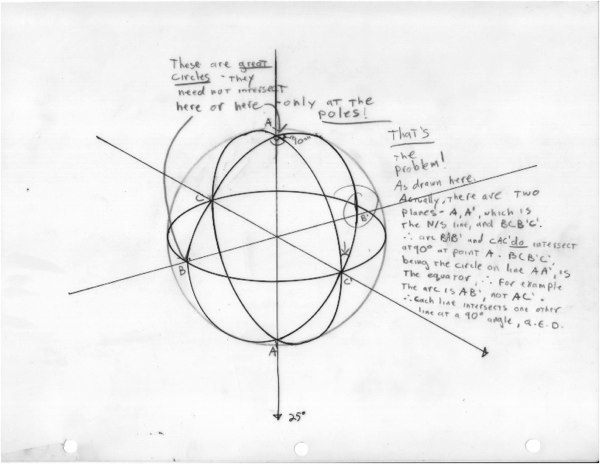 These are great
circles - They
need not intersect
here or here - only at the
poles!
A
90°
That's
the
problem!
As drawn here.
Actually, there are two
planes - A, A', which is
the N/S line, and BCB'C'.
∴ arc BAB' and CAC' do intersect
at 90° at point A. BCB'C',
being the circle on line AA', is
The equator, ∴ For example
The arc is AB', not AC'.
∴ Each line intersects one other
line at a 90° angle, Q.E.D.
C
B'
B
C'
A'
25°